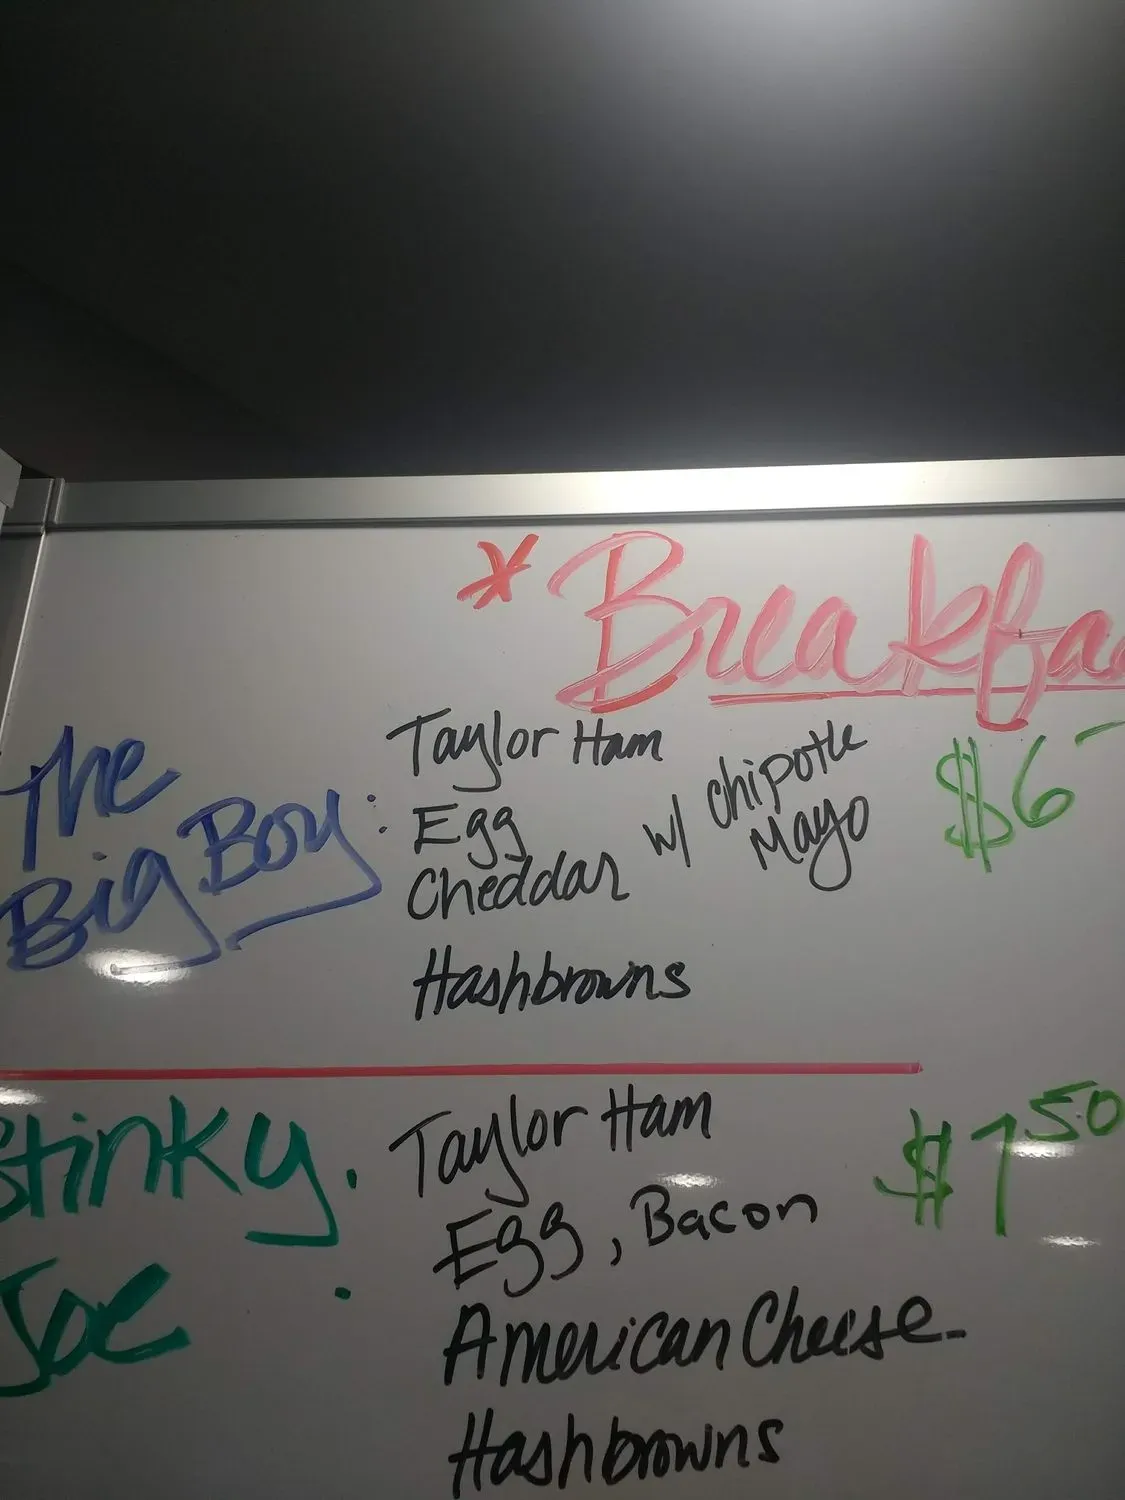 * Breakfa
The
Big Boy:
Taylor Ham
Egg
Cheddar
Hashbrowns
w/ chipotle
Mayo
$6
Stinky
Joe:
Taylor Ham
Egg, Bacon
American Cheese-
Hashbrowns
$7 50